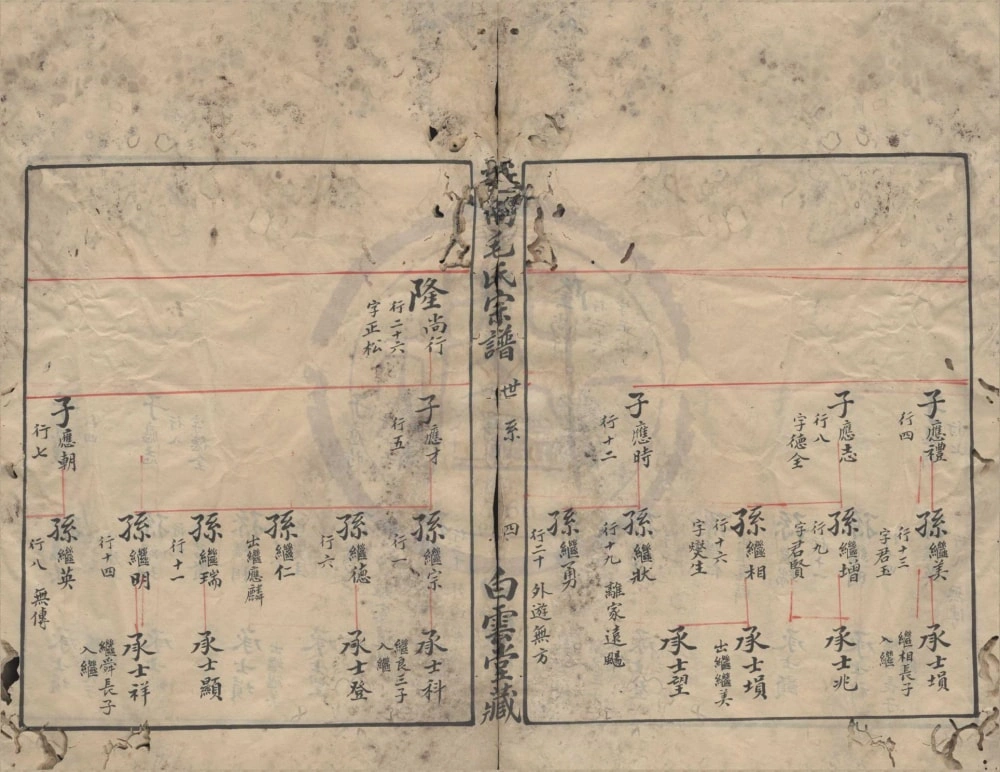 子應禮
行四
子應志
行八
字德全
子應時
行十二
孫繼美
行十三
字君玉
孫繼增
行九
字君賢
孫繼相
行十六
字燮生
孫繼狀
行十九 離家遠颺
孫繼勇
行二十 外遊無方
承士塤
繼相長子
入繼
承士兆
承士塤
出繼繼美
承士望
毛氏宗譜 世系 四 白雲堂藏
隆尚行
行二十六
字正松
子應才
行五
子應朝
行七
孫繼宗
行一
孫繼德
行六
孫繼仁
出繼應麟
孫繼瑞
行十一
孫繼明
行十四
孫繼英
行八 無傳
承士科
繼良三子
入繼
承士登
承士顯
承士祥
繼舜長子
入繼